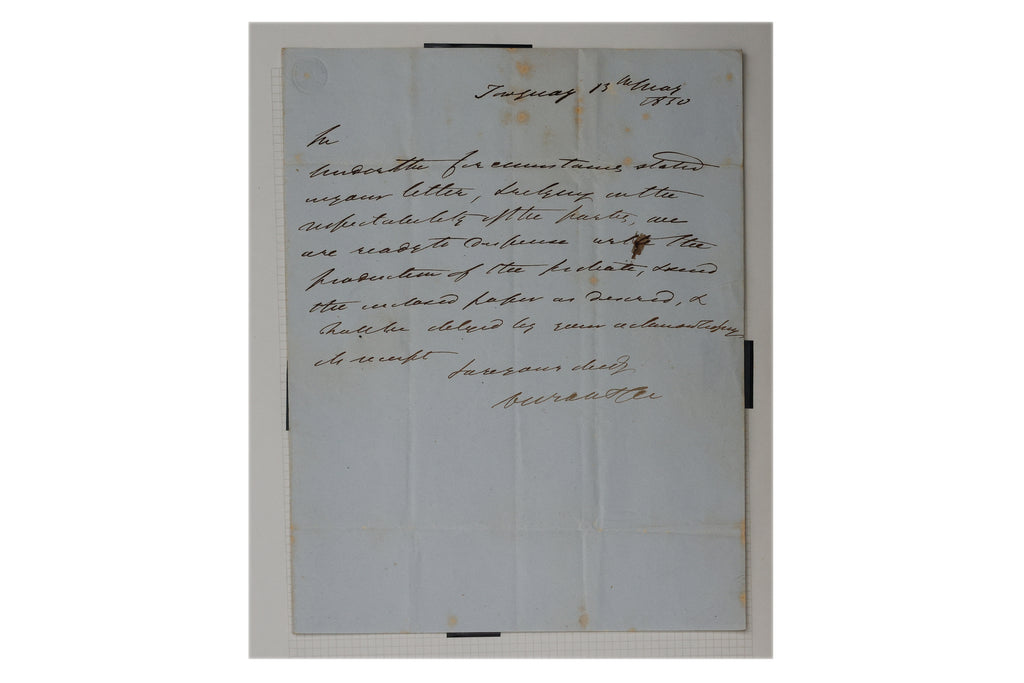 Torquay 13th May
1850
Sir
Under the circumstances stated
in your letter, & relying on the
respectability of the parties, we
are ready to dispense with the
production of the probate, & send
the enclosed paper as desired, &
shall be obliged by your acknowledging
its receipt